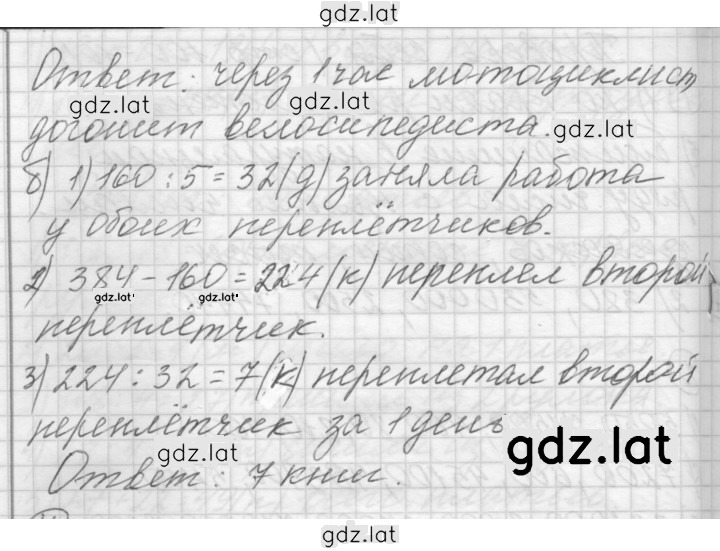 gdz.lat
Ответ: через 1 час мотоциклист
gdz.lat gdz.lat
догонит велосипедиста.
gdz.lat
б) 1) 160 : 5 = 32 (д) заняла работа
у обоих переплётчиков.
2) 384 - 160 = 224 (к) переплел второй
gdz.lat gdz.lat gdz.lat
переплётчик.
3) 224 : 32 = 7 (к) переплетал второй
переплётчик за 1 день
gdz.lat
gdz.lat
Ответ: 7 книг.
gdz.lat